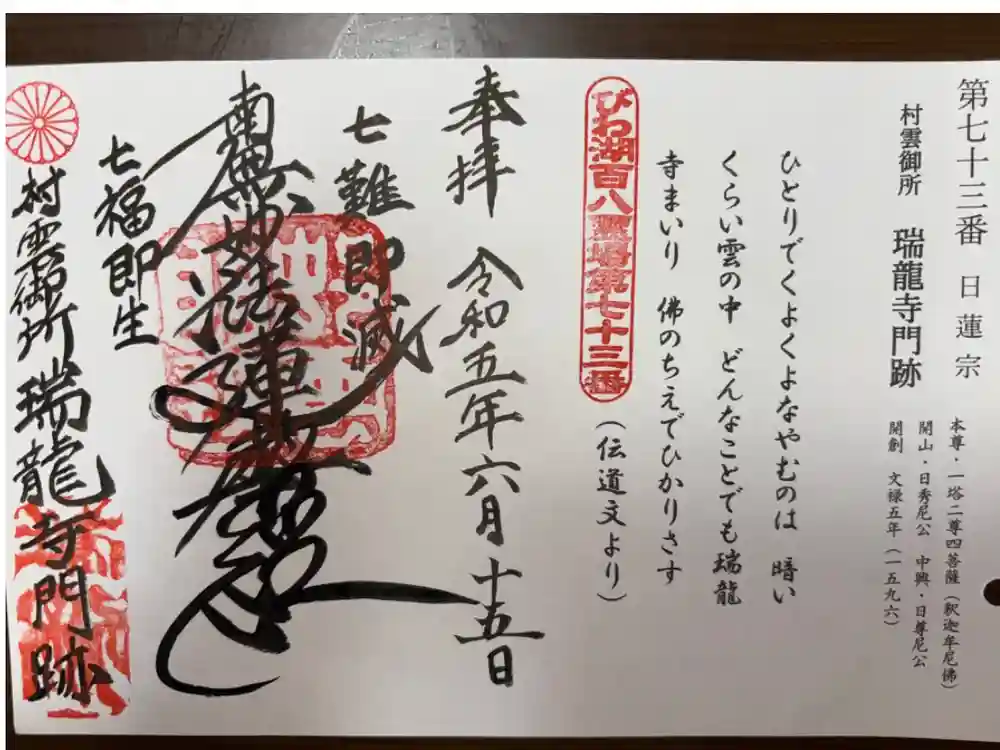 第七十三番 日蓮宗
村雲御所 瑞龍寺門跡
本尊・一塔二尊四菩薩(釈迦牟尼佛)
開山・日秀尼公 中興・日尊尼公
開創 文禄五年(一五九六)
ひとりでくよくよなやむのは 暗い
くらい雲の中 どんなことでも瑞龍
寺まいり 佛のちえでひかりさす
(伝道文より)
びわ湖百八霊場第七十三番
奉拝 令和五年六月十五日
七難即滅
南無妙法蓮華経
七福即生
村雲御所 瑞龍寺門跡